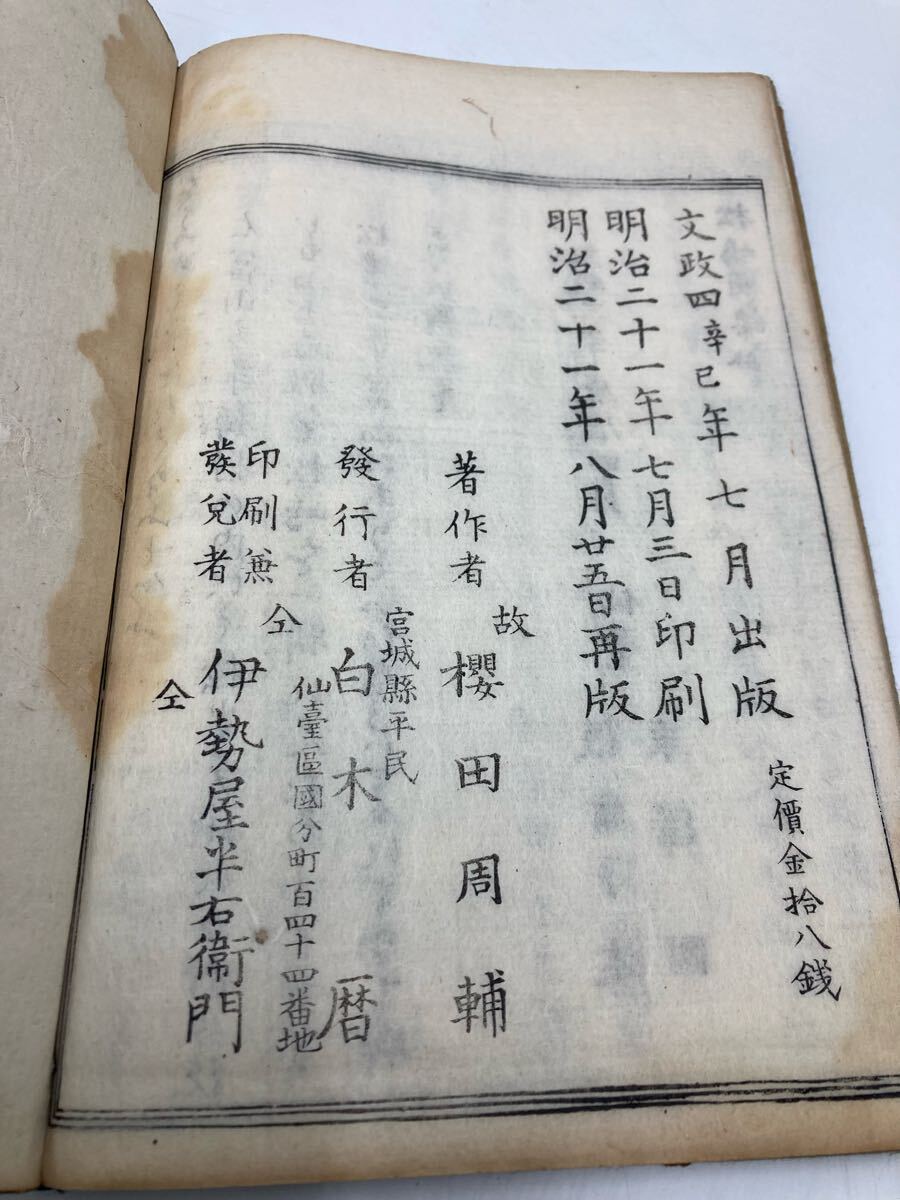 定價金拾八銭
文政四辛巳年七月出版
明治二十一年七月三日印刷
明治二十一年八月廿五日再版
著作者 故 櫻田周輔
宮城縣平民
發行者 白木暦
仙臺區國分町百四十四番地
印刷兼
發兌者 仝 伊勢屋半右衞門
仝